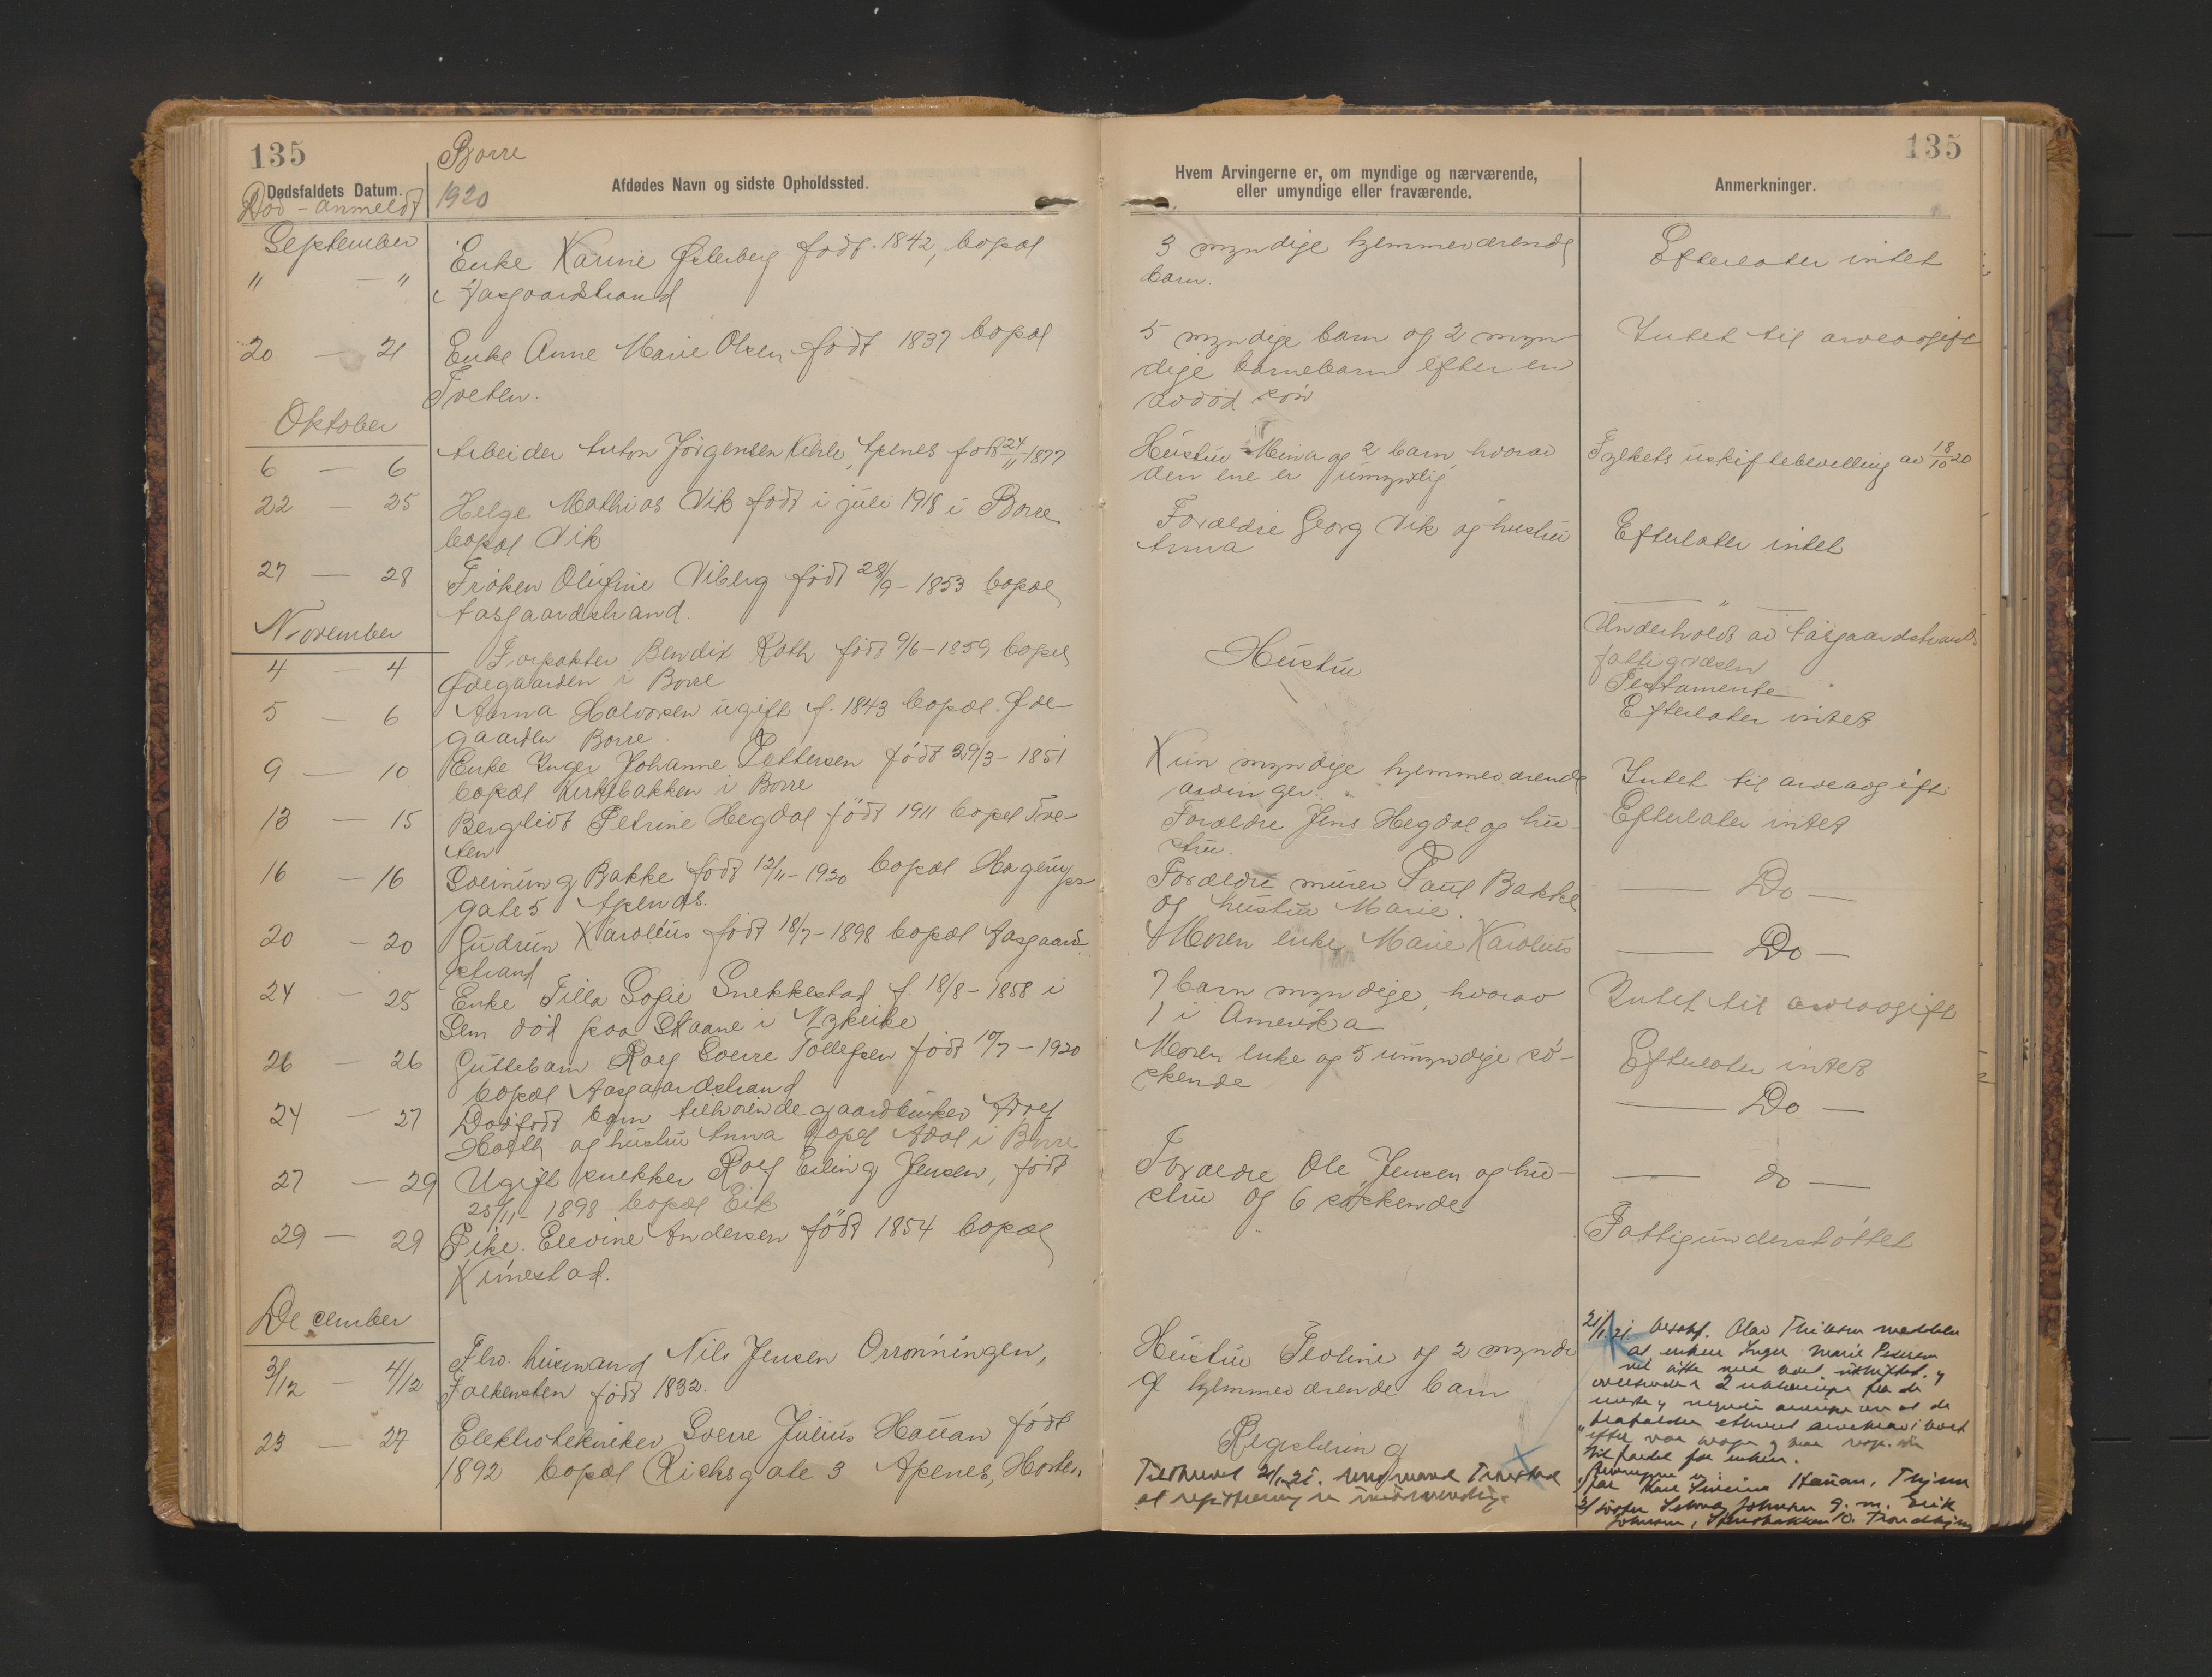 135
Borre
Dødsfaldets Datum.
Afdødes Navn og sidste Opholdssted.
Død - anmeldt
1920
September
" - "
Enke Karine Østerberg født. 1842, bopæl
i Aasgaardstrand
20 - 21
Enke Anne Marie Olsen født 1837 bopæl
Tveten.
Oktober
6 - 6
Arbeider Anton Jörgensen Kihle, Apenes født 24/11 1877
22 - 25
Helge Mathias Vik født i juli 1918 i Borre
bopæl Vik
27 - 28
Frøken Olufine Viberg født 28/9 - 1853 bopæl
Aasgaardstrand.
November
4 - 4
Forpakter Bendix Rath født 9/6 - 1859 bopæl
Ødegaarden i Borre
5 - 6
Anna Halvorsen ugift f. 1843 bopæl. Øde-
gaarden Borre
9 - 10
Enke Inger Johanne Pettersen født 29/3 - 1851
bopæl Kirkebakken i Borre
13 - 15
Bergliot Petrine Hegdal født 1911 bopæl Tve-
ten
16 - 16
Sveinung Bakke født 12/11 - 1920 bopæl Hagerups-
gate 5 Apenæs.
20 - 20
Gudrun Karolius født 18/7 - 1898 bopæl Aasgaard-
strand
24 - 25
Enke Tilla Sofie Snekkestad f. 18/8 - 1858 i
Sem død paa Skaane i Nykirke
26 - 26
Guttebarn Rolf Sverre Tollefsen født 10/7 - 1920
bopæl Aasgaardstrand
24 - 27
Dødfødt barn tilhørende gaardbruker Adolf
og hustru Anna bopæl Adal i Borre
27 - 29
Ugift snekker Rolf Erling Jensen, født
25/11 - 1898 bopæl Eik
29 - 29
Pike. Elevine Andersen født 1854 bopæl
Kinestad.
December
3/12 - 4/12
Fhv. husmand Nils Jensen Orrönningen,
Falkensten født 1832.
23 - 27
Elektrotekniker Sverre Julius Hauan født
1892 bopæl Richsgate 3 Apenes, Horten
135
Hvem Arvingerne er, om myndige og nærværende,
eller umyndige eller fraværende.
Anmerkninger.
3 myndige hjemmeværende
barn.
Efterlater intet
5 myndige barn og 2 myn-
dige barnebarn efter en
avdød sön
Intet til arveavgift
Hustru Mina og 2 barn hvorav
den ene er umyndig
Fylkets uskiftebevilling av 18/10 20
Forældre Georg Vik og hustru
Anna
Efterlater intet
"
Underholdt av Aasgaardstrands
fattigvæsen
Hustru
Testamente
Efterlater intet
Kun myndige hjemmeværende
arvinger.
Intet til arveavgift
Forældre Jens Hegdal og hu-
stru.
Efterlater intet
Forældre murer Paul Bakke
og hustru Marie.
Do
Moren enke Marie Karolius
Do
7 barn myndige, hvorav
1 i Amerika
Intet til arveavgift
Moren enke og 5 umyndige sö-
skende
Efterlater intet
Do
Forældre Ole Jensen og hu-
stru og 6 søskende
do
Fattigunderstøttet
Hustru Teoline og 2 myndi
g hjemmeværende barn
Registering
Tilskrevet 21/1 21.
at registrering er unødvendig
21/1 21. Olav meddeler
at enken Inger Marie Pedersen
2
efter
for enken.
Arvingerne er:
1/ far Karl Hauan,
2/ søster Johnsen g. m. Erik
Johnsen, 10. Trondhjem